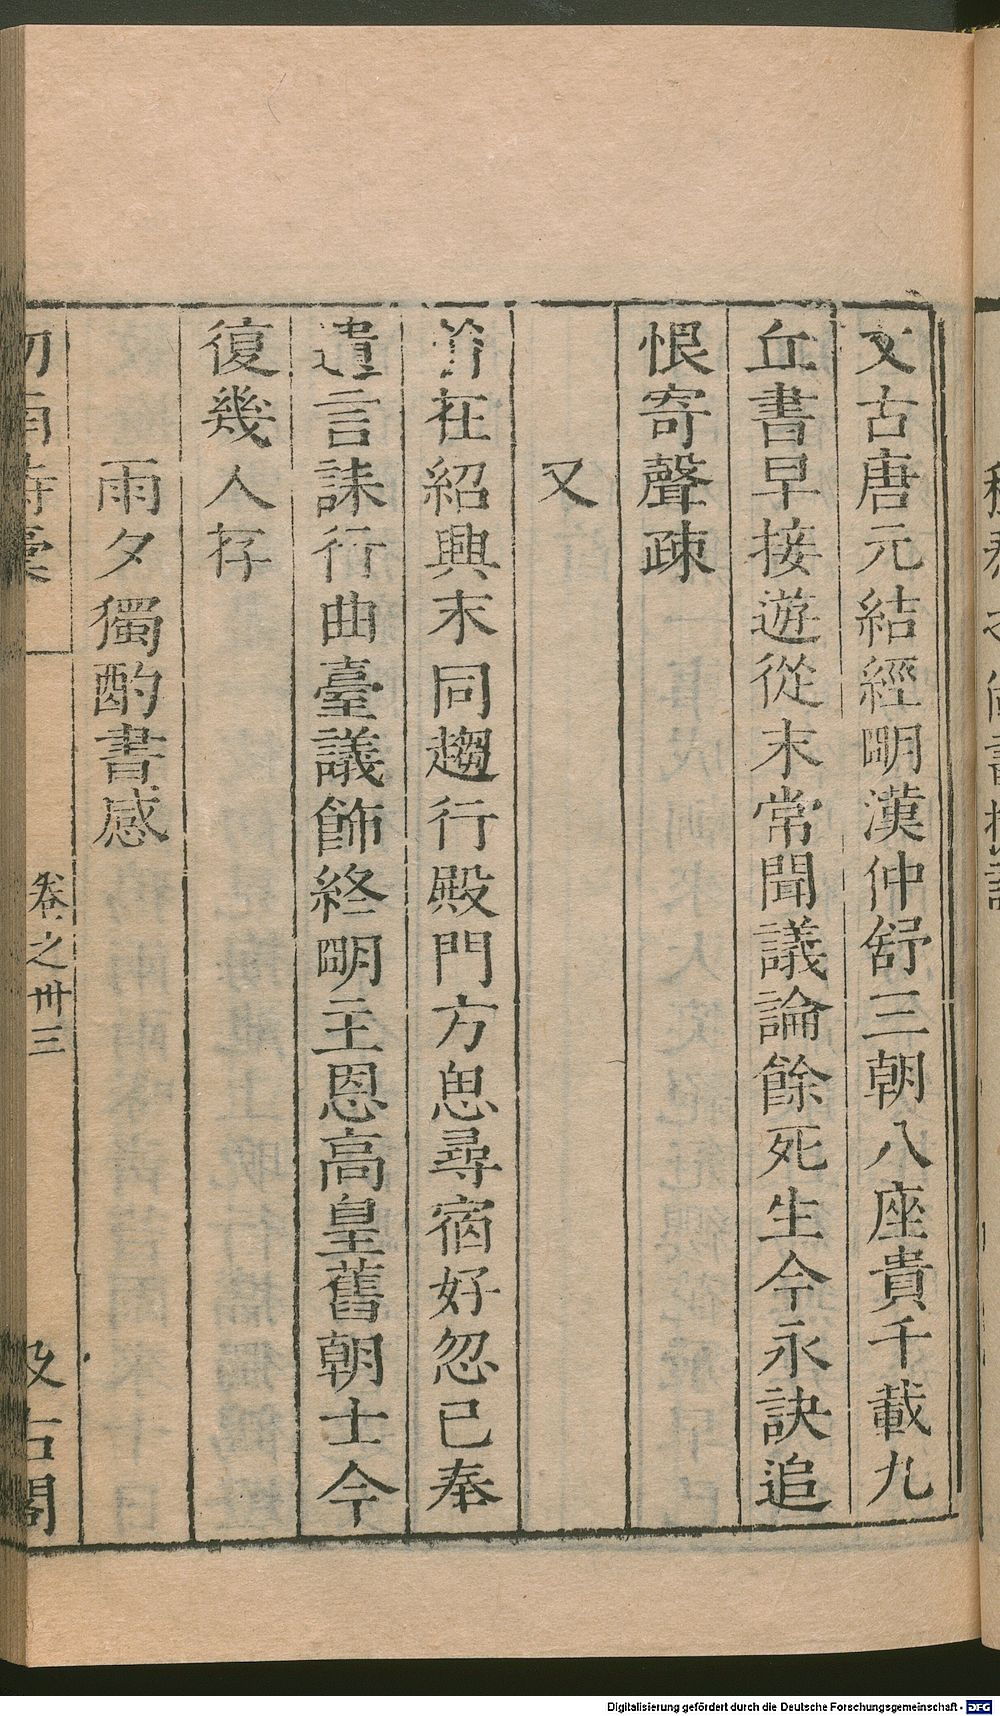 文古唐元結經明漢仲舒三朝八座貴千載九
丘書早接遊從末常聞議論餘死生今永訣追
恨寄聲疎
又
昔在紹興末同趨行殿門方思尋宿好忽已奉
遺言誄行曲臺議飾終明主恩高皇舊朝士今
復幾人存
雨夕獨酌書感
劍南詩稾
卷之卅三
汲古閣
Digitalisierung gefördert durch die Deutsche Forschungsgemeinschaft - DFG